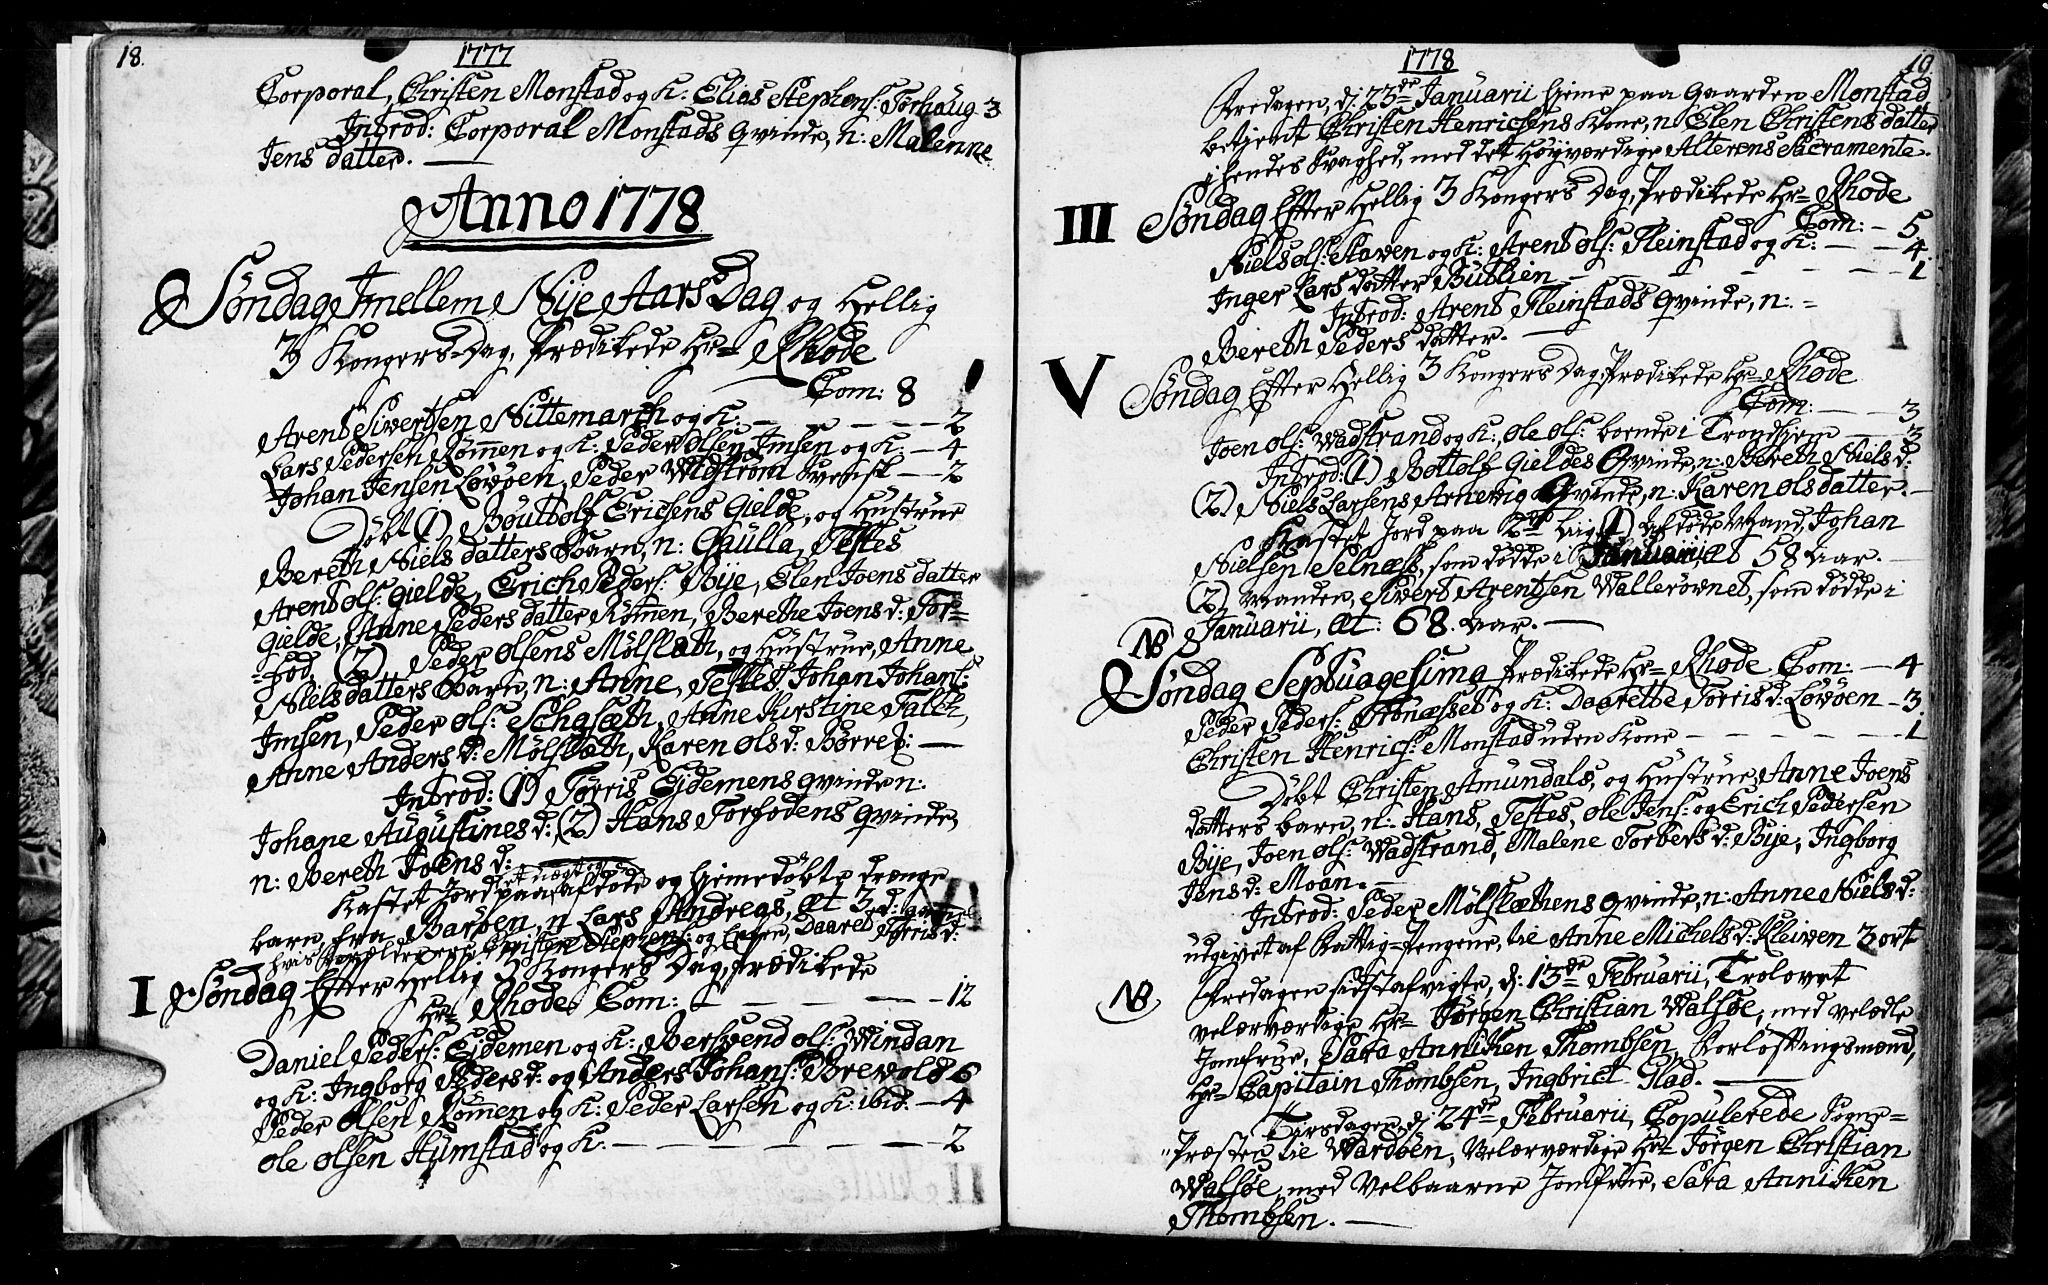 18.
1777
Corporal, Christen Monstad og K: Elias Stephens: Torhaug 3
Introd: Corporal Monstads Qvinde, n: Malenne
Jens datter.
Anno 1778
Søndag Imellem Nije Aars Dag og Hellig
3 Kongers-Dag, Prædikede Hr= Rhode
Com: 8
Arent Sivertsen Nittemarch og K: 2
Lars Pedersen Rømmen og K: Peder Olsen Imsen og K. 4
Johan Jensen Løvøen, Peder Widstrøm Svensk 2
Døbt (1) Boutolf Erichsens Gielde, og Hustrue
Bereth Niels datters Barn, n: Gaulla, Testes
Arent Ols: Gielde, Erich Peders: Bije, Elen Joens datter
Gielde, Anne Peders datter Rømmen, Berethe Joens d: Tor=
=hod, (2) Peder Olsens Mølslæth, og Hustrue, Anne
Niels datters Barn, n: Anne, Testes Johan Johans:
Imsen, Peder Ols: Schasæth, Anne Kirstine Falch,
Anne Anders d: Mølslæth, Karen Ols d: Børret:
Introd: (1) Tørris Eidemens Qvinde n:
Johane Augustines d: (2) Hans Torhodens Qvinde,
n: Bereth Joens d:
Kastet Jord paa et ægte afdøde og Hiemedøbte drænge
barn, fra Barøen, n: Lars Andreas, æt 3 d:
hvis Forældre ere Christen Stephens: og Daaret Tørris d:
I Søndag Efter Hellig 3 Kongers Dag, Prædikede
Hr= Rhode Com: 12
Daniel Peders: Eidemen og K: Bersvend Ols: Windan
og K: Ingborg Peders d: og Anders Johans: Brevold 6
Peder Olsen Rømmen og K: Peder Larsen og K: ibid: 4
Ole Olsen Humstad og K. 2
1778
19.
Fredagen, d: 23de Januarii hieme paa Gaarden Monstad
betjent Christen Henrichsens Kone, n: Elen Christens datter
i hendes Svaghed, med det Høyværdige Alterens Sacramente.
III Søndag Efter Hellig 3 Kongers Dag, Prædikede Hr= Rhode
Com: 5
Niels Ols: Staven og K: Arent Ols: Fleinstad og K: 4
Inger Lars datter Butlien 1
Introd: Arent Fleinstads Qvinde, n: =
Bereth Peders datter.
V Søndag Efter Hellig 3 Kongers Dag, Prædikede Hr= Rhode
Com: 3
Joen Ols: Wadstrand og K: Ole Ols: boende i Trondhjem 3
Introd: (1) Bottolf Gieldes Qvinde, n: Bereth Niels d:
(2) Niels Larsens Arnevig Qvinde, n: Karen Ols datter.
Kastet Jord paa 2de Liig (1) Afdøde Mand, Johan
Nielsen Selnæss, som døde i Januarii, æt 58 Aar.
(2) Manden, Sivert Arentsen Wallerøvnet, som døde i
Januarii, æt: 68. Aar.
NB
Søndag Septuagesima Prædikede Hr= Rhode Com: 4
Peder Peders: Trønæsset og K: Daarette Tørris d: Løvøen 3
Christen Henrichs: Monstad uden Kone 1
Døbt Christen Amundals, og Hustrue, Anne Joens
datters barn, n: Hans, Testes, Ole Jens: og Erich Pedersen
Bije, Joen Ols: Wadstrand, Malene Torbers d: Bije, Ingborg
Jens d: Moan.
Introd: Peder Mølslæthens Qvinde, n: Anne Niels d:
udgivet af Fattig-Pengene, til Anne Michels d: Kleiven 3 ort
NB Fredagen sidstafvigte, d: 13de Februarii, Trolovet
velærværdige Hr= Jørgen Christian Walsøe, med velædle
Jomfrue, Sara Anniken Thombsen, Forlovningsmænd,
Hr= Capitain Thombsen, Ingbrict Glad.
Tirsdagen d: 24de Februarii, Copulerede Sogne=
"Præsten til Wardøen, Velærværdige Hr= Jørgen Christian
Walsøe, med Velbaarne Jomfrue, Sara Anniken
Thombsen.